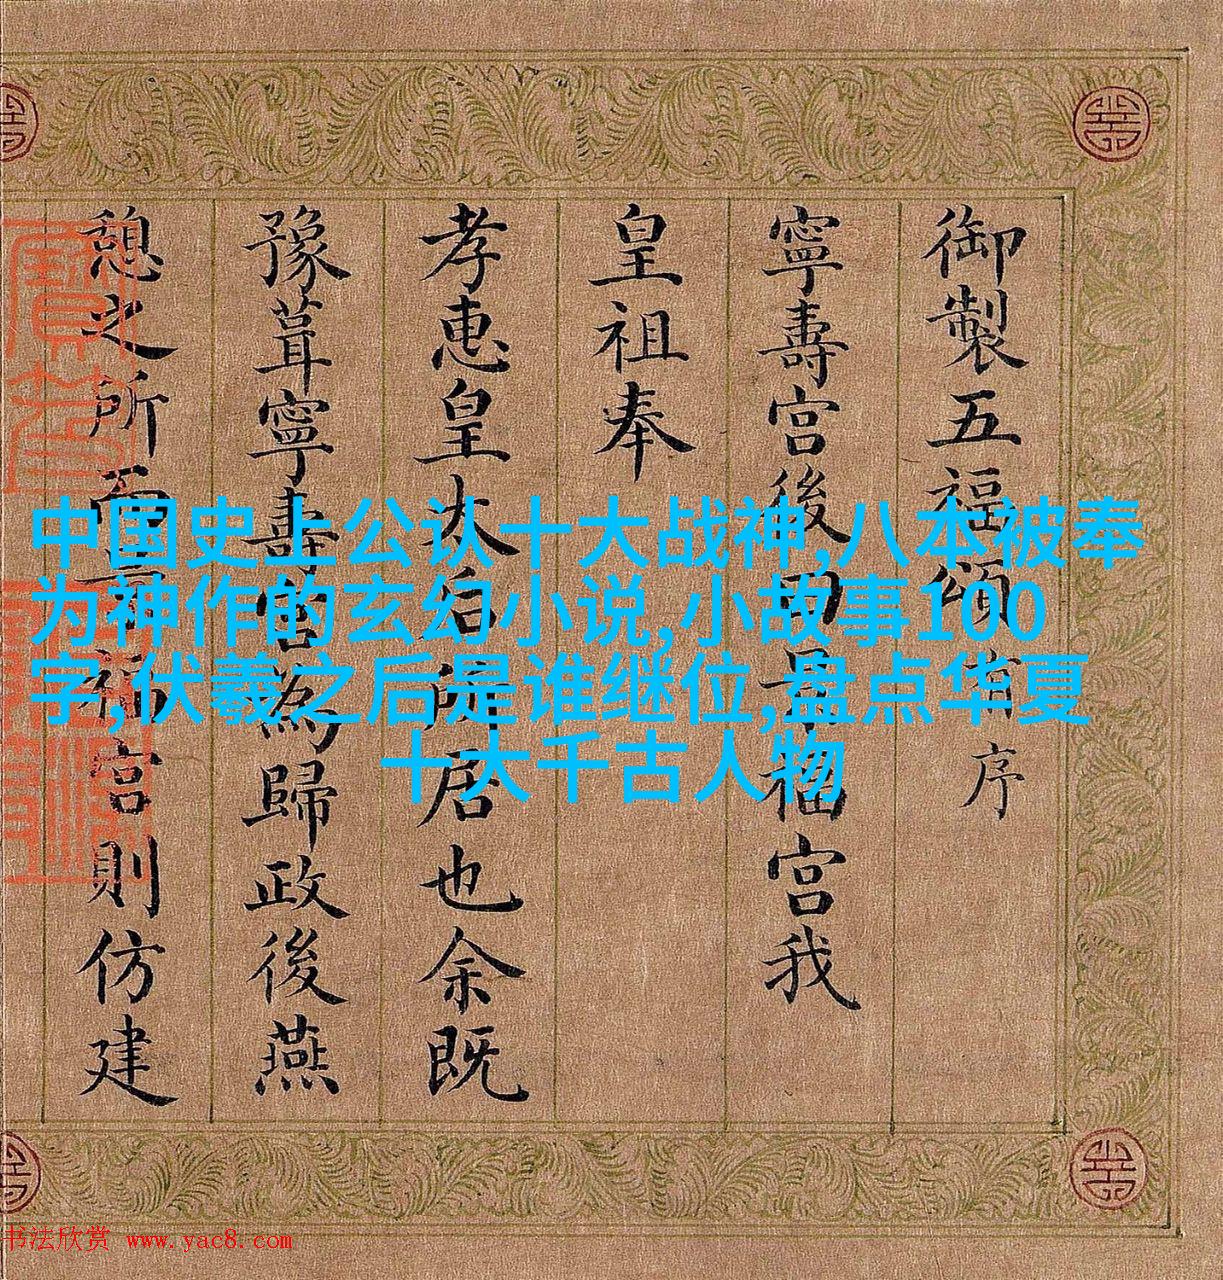 御製五福頌有序
寧壽宮後曰景福宮我
皇祖奉
孝惠皇太后所居也余既
豫葺寧壽宮為歸政後燕
憩之所而景福宮則仿建
中国史上公认十大战神,八本被奉
为神作的玄幻小说,小故事100
字,伏羲之后是谁继位,盘点华夏
十大千古人物
书法欣赏 www.yac8.com